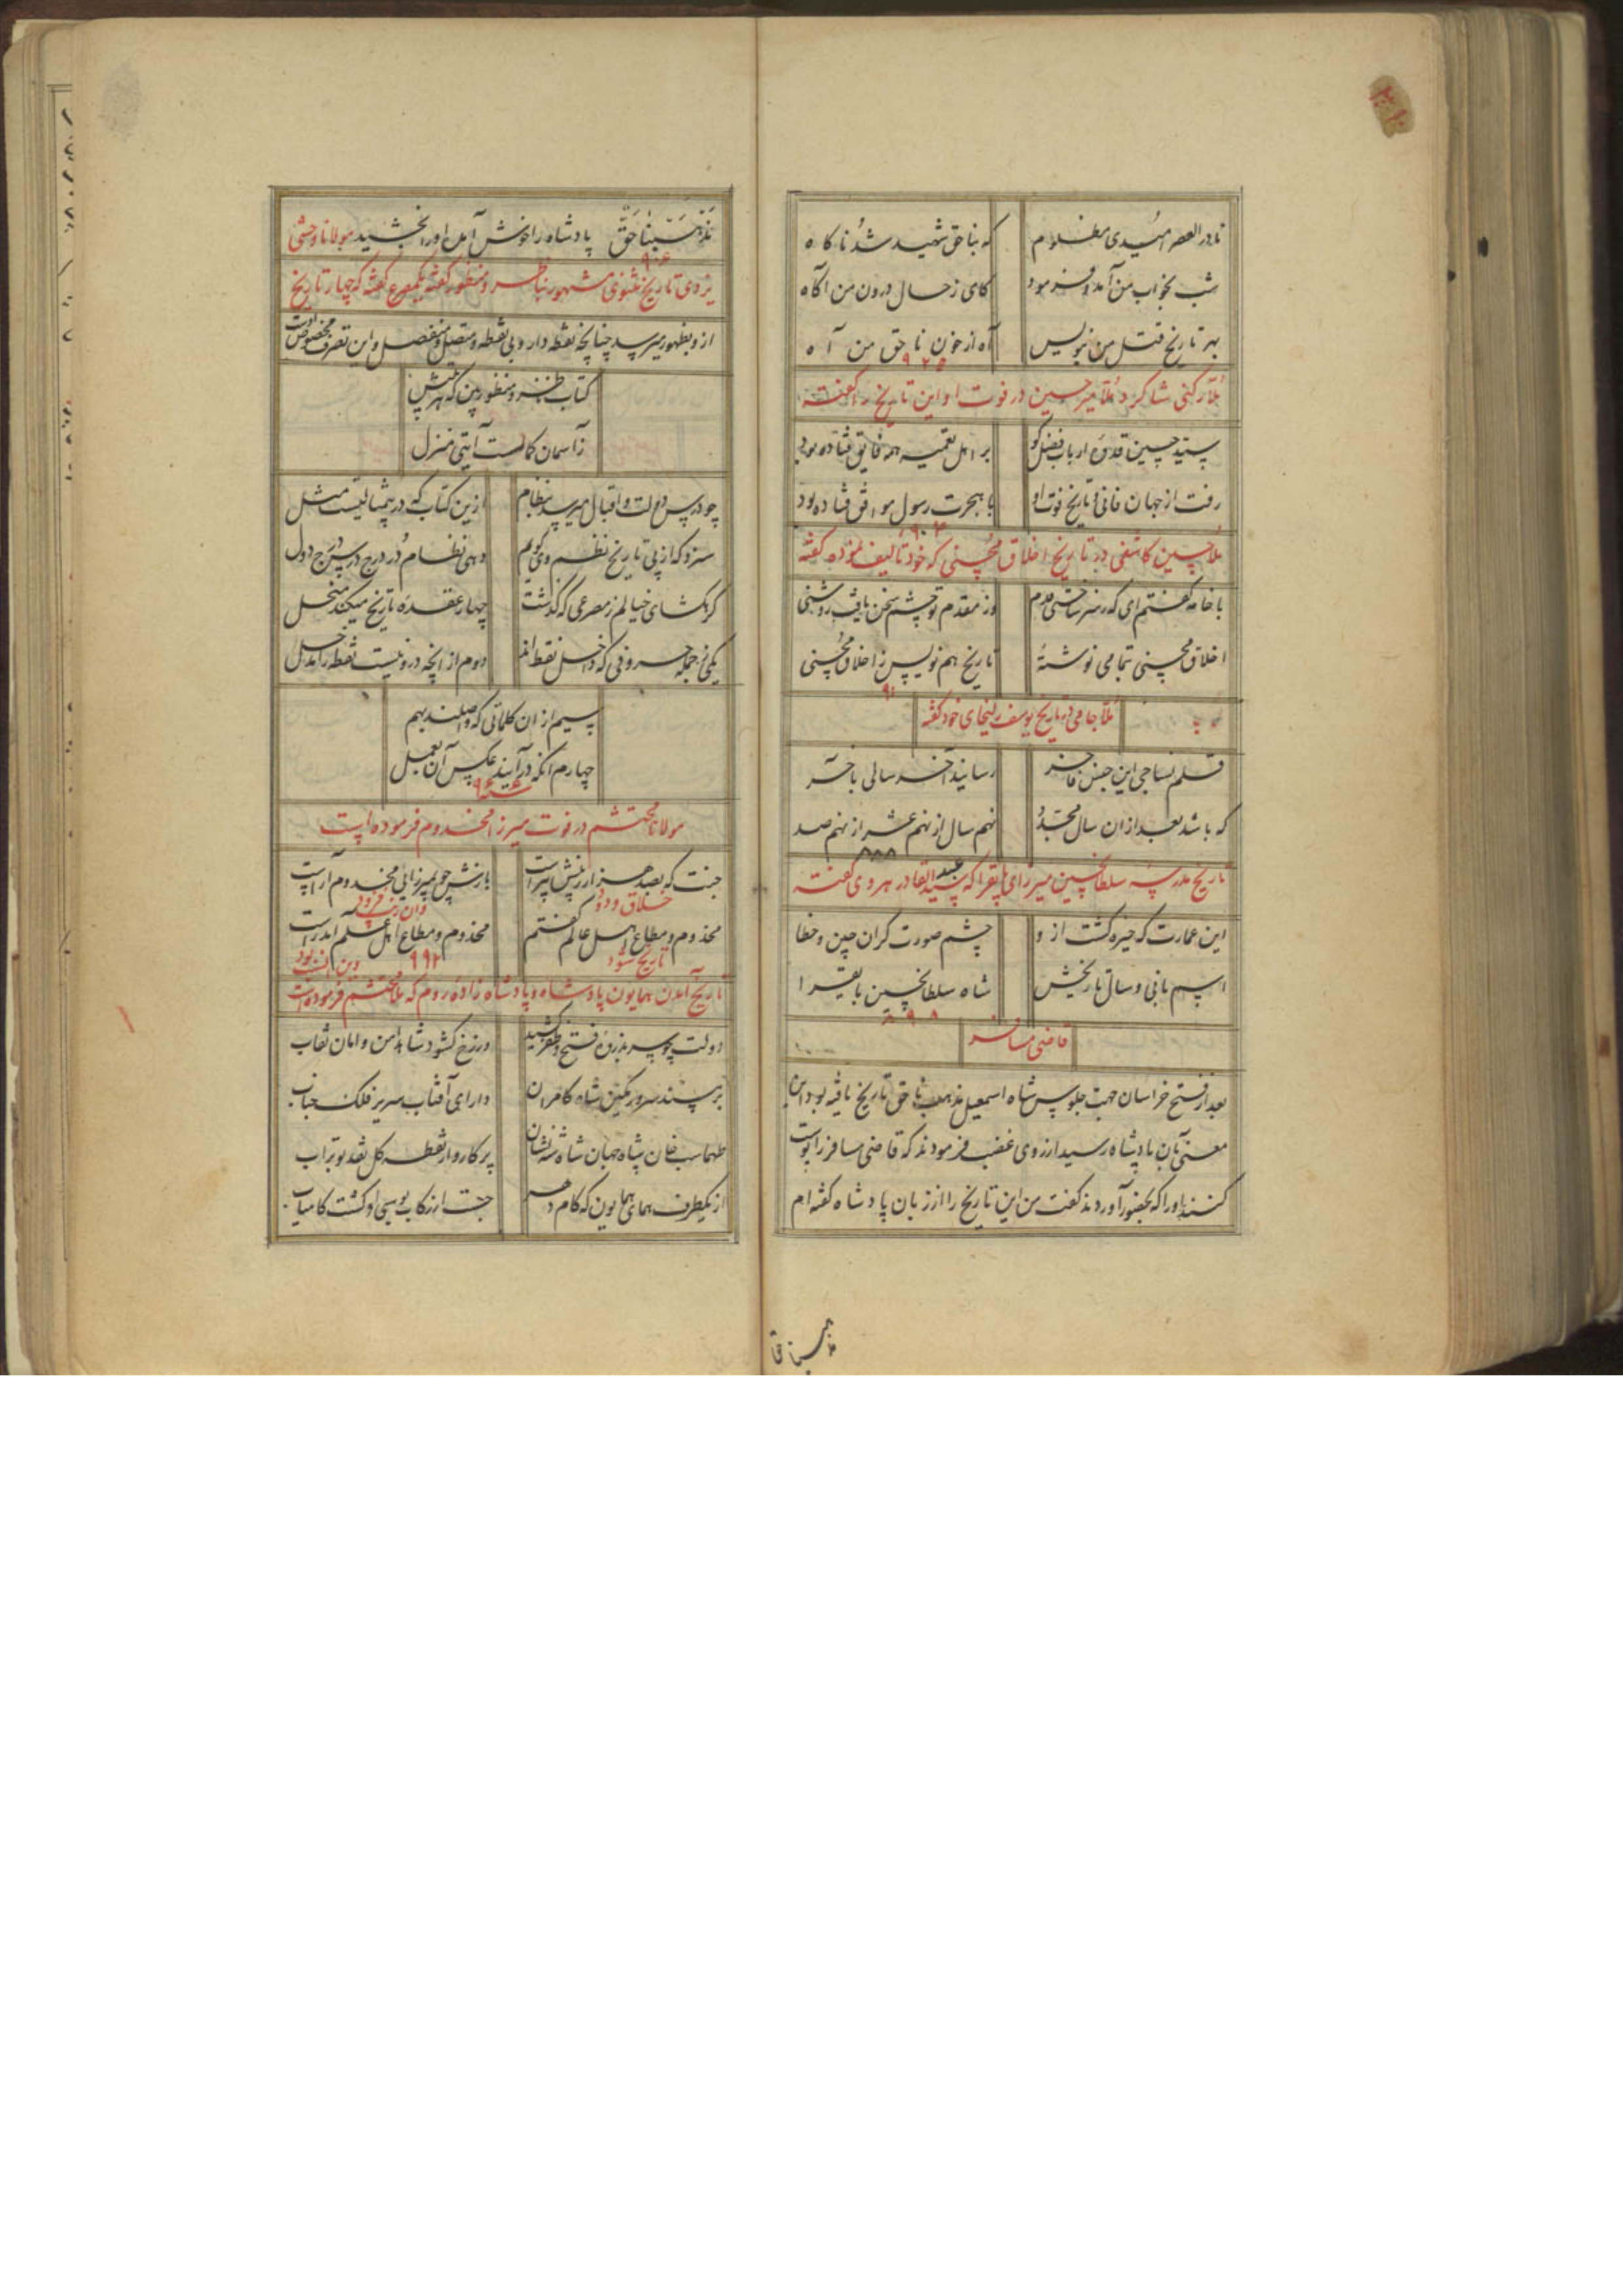 نادر العصر امیدی مظلوم که بناحق شهید شد ناگاه
شب بخواب من آمد و فرمود کای ز حال درون من آگاه
بهر تاریخ قتل من بنویس آه از خون ناحق من آه
۹۲۵
ملا رکنی شاگرد ملا میر حسین در فوت او این تاریخ را گفته
سید حسین قدوه ارباب فضل کو بر اهل تعمیه همه فایق فتاده بود
رفت از جهان فانی و تاریخ فوت او با هجرت رسول موافق فتاده بود
۹۰۴
ملا حسین کاشفی در تاریخ اخلاق محسنی که خود تالیف نموده گفته
با خامه گفتم ای که ز سر ساختی قدم وز مقدم تو چشم سخن یافت روشنی
اخلاق محسنی بتمامی نوشتهٔ تاریخ هم نویس ز اخلاق محسنی
ملا جامی در تاریخ یوسف زلیخای خود گفته
قلم نساجی این جنس فاخر رسانید آخر سالی بآخر
که باشد بعد از آن سال مجدد نهم سال از نهم عشر از نهم صد
۸۸۸
تاریخ مدرسه سلطان حسین میرزای بایقرا که سید عبد القادر هروی گفته
این عمارت که خیره گشت از و چشم صورت گران چین و خطا
اسم بانی و سال تاریخش شاه سلطان حسین بایقرا
۸۹۸
قاضی مسافر
بعد از فتح خراسان جهت جلوس شاه اسمعیل مذهب ناحق تاریخ یافته بود این
معنی بآن پادشاه رسید از روی غضب فرمودند که قاضی مسافر را پوست
کنند او را که بحضور آوردند گفت من این تاریخ را از زبان پادشاه گفته ام
مذهبنا حق پادشاه را خوش آمد او را بخشید مولانا وحشی
۹۰۶
یزدی تاریخ مثنوی مشهور بناظر و منظور گفته یکمصرع گفته که چهار تاریخ
از و بظهور میرسد چنانچه نقطه دار و بی نقطه و متصل و منفصل و این تصرف مخصوص اوست
کتاب ناظر و منظور بین که هر بیتش
ز آسمان کمالست آیتی منزل
چو در پس دولت و اقبال میرسد بنظام ازین کتاب که در بیمثالیست مثل
سزد که از پی تاریخ نظم وی گویم دهی نظام در درج درس درج دول
گره گشای خیالم ز مصرعی که گذشت چهار عقدهٔ تاریخ میکند منحل
یکی ز جمله حروفی که داخل نقط اند دوم از آنچه درو نیست نقطه را مدخل
سیم از آن کلماتی که واصلند بهم
چهارم آنکه در آیند عکس آن بعمل
۹۶۶
مولانا محتشم در فوت میرزا مخدوم فرموده است
جنت که بصد هزار زینش پیراست بازش چو بمیرزایی مخدوم آراست
مخدوم و مطاع اهل عالم گفتم مخدوم و مطاع اهل علم آمد راست
تاریخ شود ۹۹۲
تاریخ آمدن همایون پادشاه و پادشاه زاده روم که ملا محتشم فرموده است
دولت چو سر بذروه فتح و ظفر کشید وز رخ گشود شاهد امن و امان نقاب
بر مسند سرور مکین شاه کامران دارای آفتاب سریر فلک جناب
طهماسب خان پناه جهان شاه شه نشان پرکار وار نقطه کل نقد بوتراب
از یکطرف همای همایون که کام دهر جست از رکاب بوسی او گشت کامیاب
مذهبنا حق